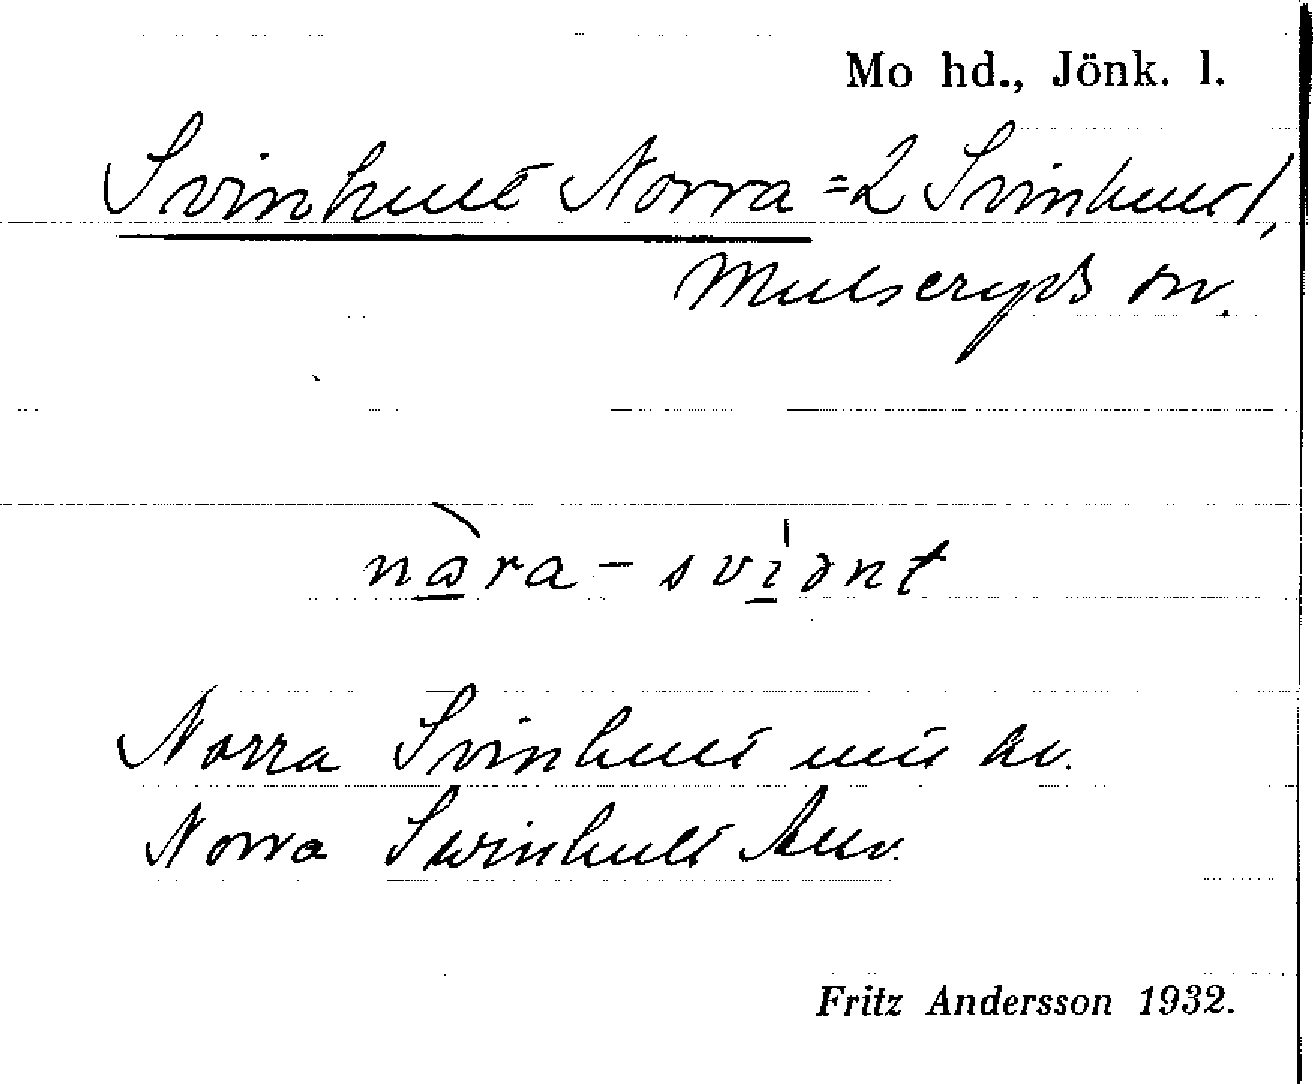 Mo hd., Jönk. l.
Svinhult Norra = 2 Svinhult,
Mulseryds sn.
nåra - sviənt
Norra Svinhult
Norra Swinhult
Fritz Andersson 1932.